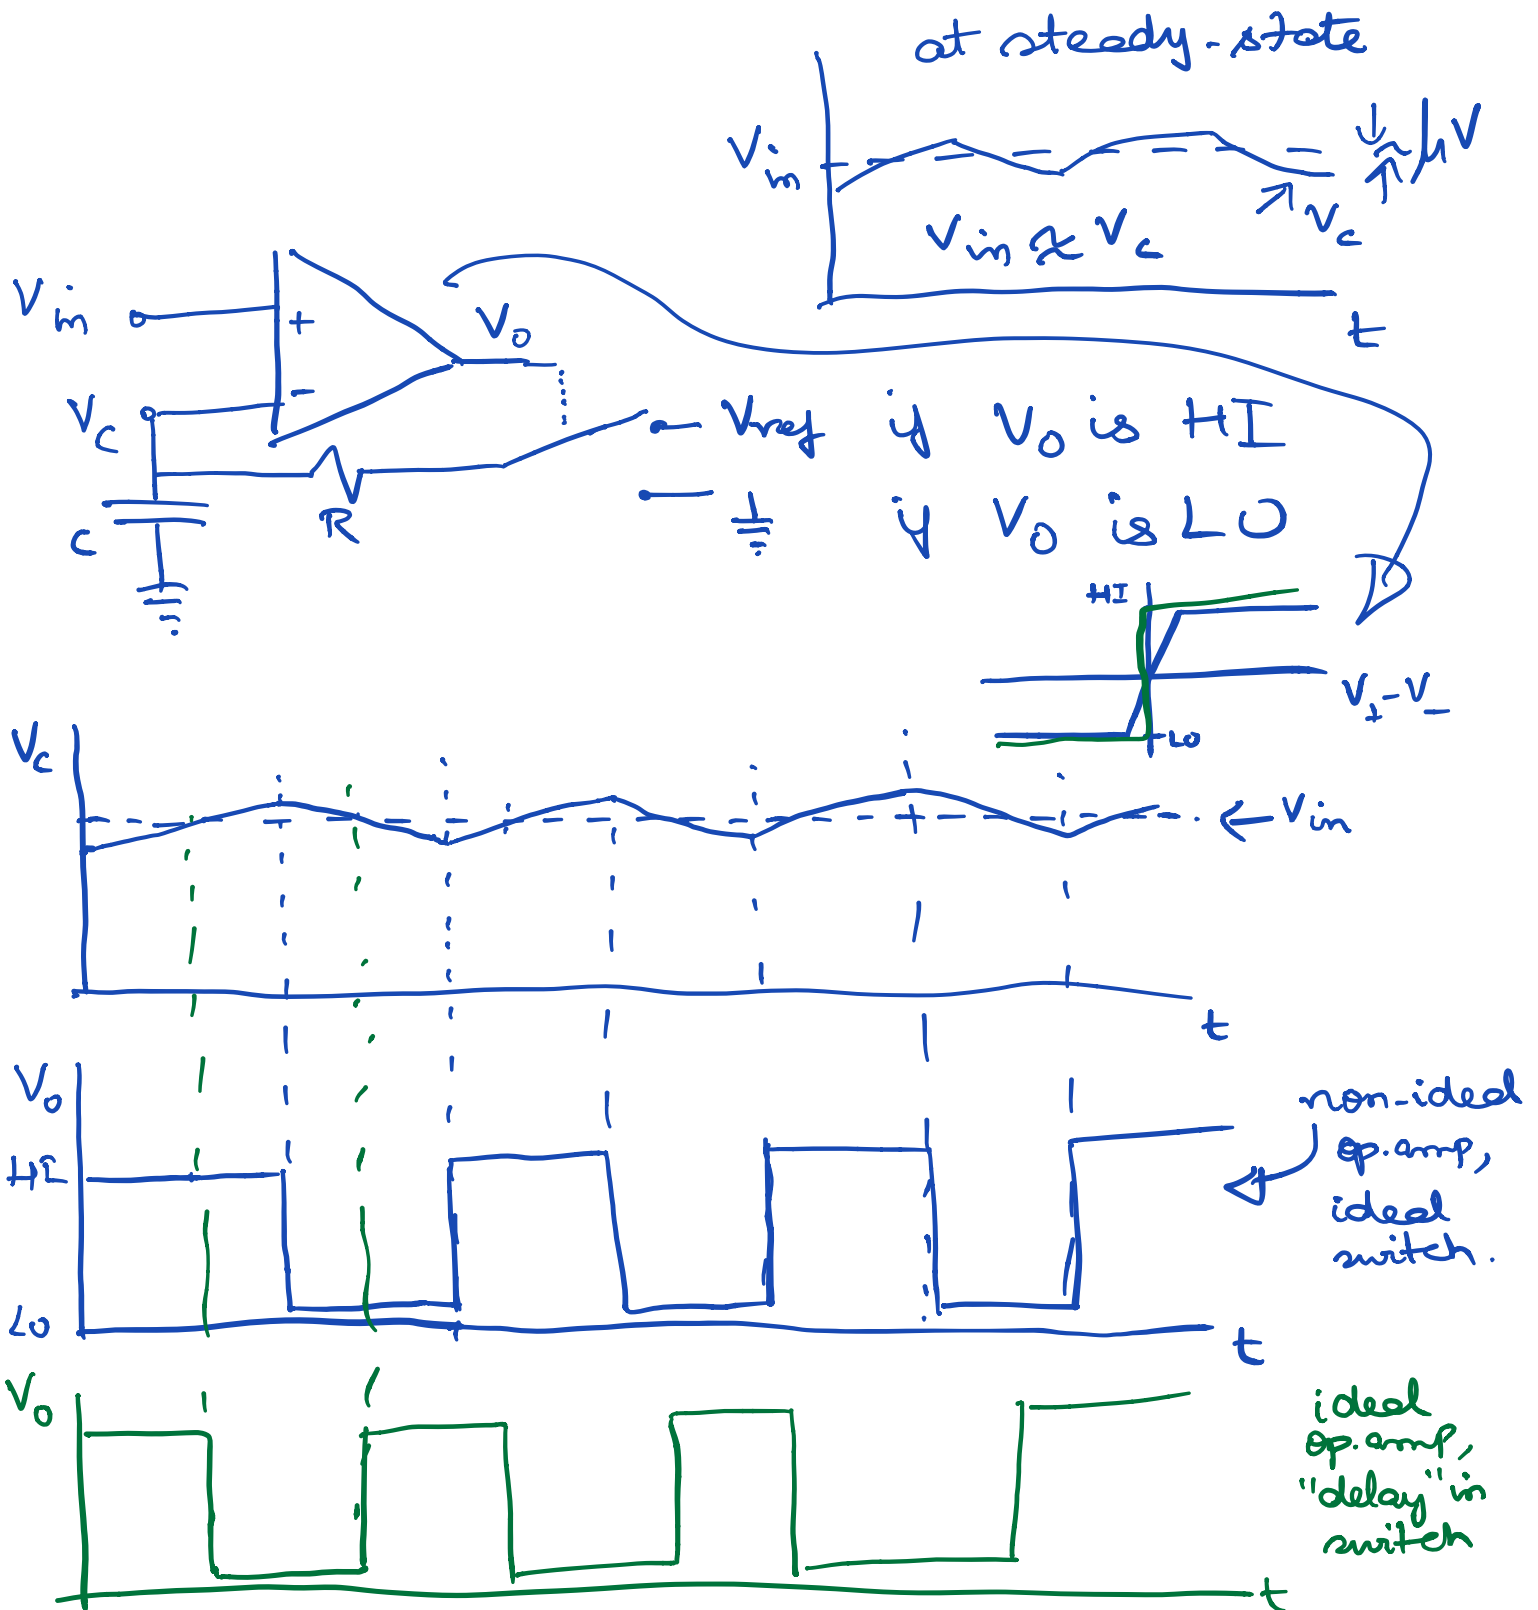 at steady-state
V_in
μV
V_c
V_in ≈ V_c
t
V_in
+
V_o
V_c
-
C
R
V_ref if V_o is HI
if V_o is LO
HI
V_+ - V_-
LO
V_c
V_in
t
V_o
HI
LO
t
non-ideal
op.amp,
ideal
switch.
V_o
t
ideal
op.amp,
"delay" in
switch